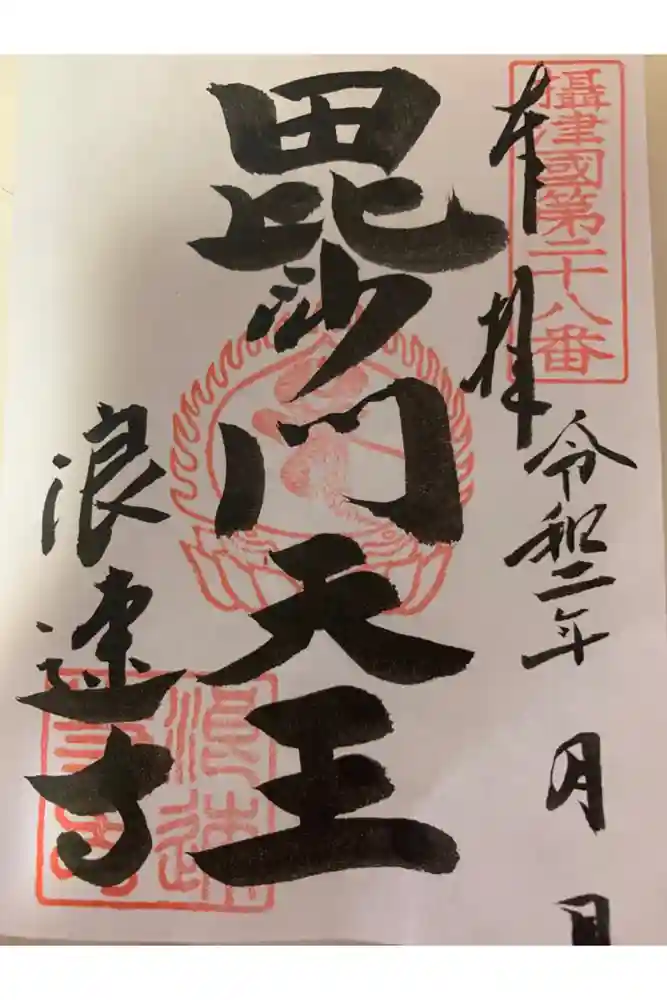 攝津國第二十八番
奉拝
令和二年 月 日
毘沙門天王
浪速寺
浪速